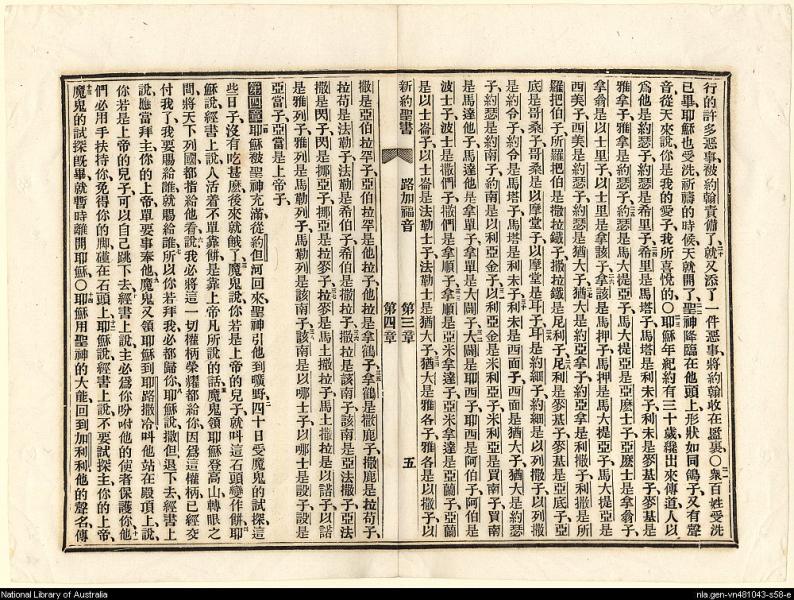 行的許多惡事被約翰責備了就又添了一件惡事將約翰收在監裏○衆百姓受洗
已畢耶穌也受洗祈禱的時候天就開了聖神降臨在他頭上形狀如同鴿子又有聲
音從天來說你是我的愛子我所喜悅的○耶穌年紀約有三十歲纔出來傳道人以
爲他是約瑟子約瑟是希里子希里是馬塔子馬塔是利未子利未是麥基子麥基是
雅拿子雅拿是約瑟子約瑟是馬大提亞子馬大提亞是亞麽士子亞麽士是拿翁子
拿翁是以士里子以士里是拿該子拿該是馬押子馬押是馬大提亞子馬大提亞是
西美子西美是約瑟子約瑟是猶大子猶大是約亞拿子約亞拿是利撒子利撒是所
羅把伯子所羅把伯是撒拉鐵子撒拉鐵是尼利子尼利是麥基子麥基是亞底子亞
底是哥桑子哥桑是以摩堂子以摩堂是耳子耳是約細子約細是以列撒子以列撒
是約令子約令是馬塔子馬塔是利未子利未是西面子西面是猶大子猶大是約瑟
子約瑟是約南子約南是以利亞金子以利亞金是米利亞子米利亞是買南子買南
是馬達他子馬達他是拿單子拿單是大闢子大闢是耶西子耶西是阿伯子阿伯是
波士子波士是撒們子撒們是拿順子拿順是亞米拿達子亞米拿達是亞蘭子亞蘭
是以士崙子以士崙是法勒士子法勒士是猶大子猶大是雅各子雅各是以撒子以
新約聖書 路加福音 第三章 第四章 五
撒是亞伯拉罕子亞伯拉罕是他拉子他拉是拿鶴子拿鶴是撒鹿子撒鹿是拉苟子
拉苟是法勒子法勒是希伯子希伯是撒拉子撒拉是該南子該南是亞法撒子亞法
撒是閃子閃是挪亞子挪亞是拉麥子拉麥是馬土撒拉子馬土撒拉是以諾子以諾
是雅列子雅列是馬勒列子馬勒列是該南子該南是以哪士子以哪士是設子設是
亞當子亞當是上帝子
第四章 耶穌被聖神充滿從約但河回來聖神引他到曠野四十日受魔鬼的試探這
些日子沒有吃甚麽後來就餓了魔鬼說你若是上帝的兒子就叫這石頭變作餅耶
穌說經書上說人活着不單靠餅是靠上帝凡所說的話魔鬼領耶穌登高山轉眼之
間將天下列國都指給他看說我必將這一切權柄榮耀都給你因爲這權柄已經交
付我了我要賜給誰就賜給誰所以你若拜我必都歸你耶穌說撒但退下去經書上
說應當拜主你的上帝單要事奉他魔鬼又領耶穌到耶路撒冷叫他站在殿頂上說
你若是上帝的兒子可以自己跳下去經書上說主必爲你吩咐他的使者保護你他
們必用手扶持你免得你的脚磕在石頭上耶穌說經書上說不要試探主你的上帝
魔鬼的試探旣畢就暫時離開耶穌○耶穌用聖神的大能回到加利利他的聲名傳
National Library of Australia
nla.gen-vn481043-s58-e